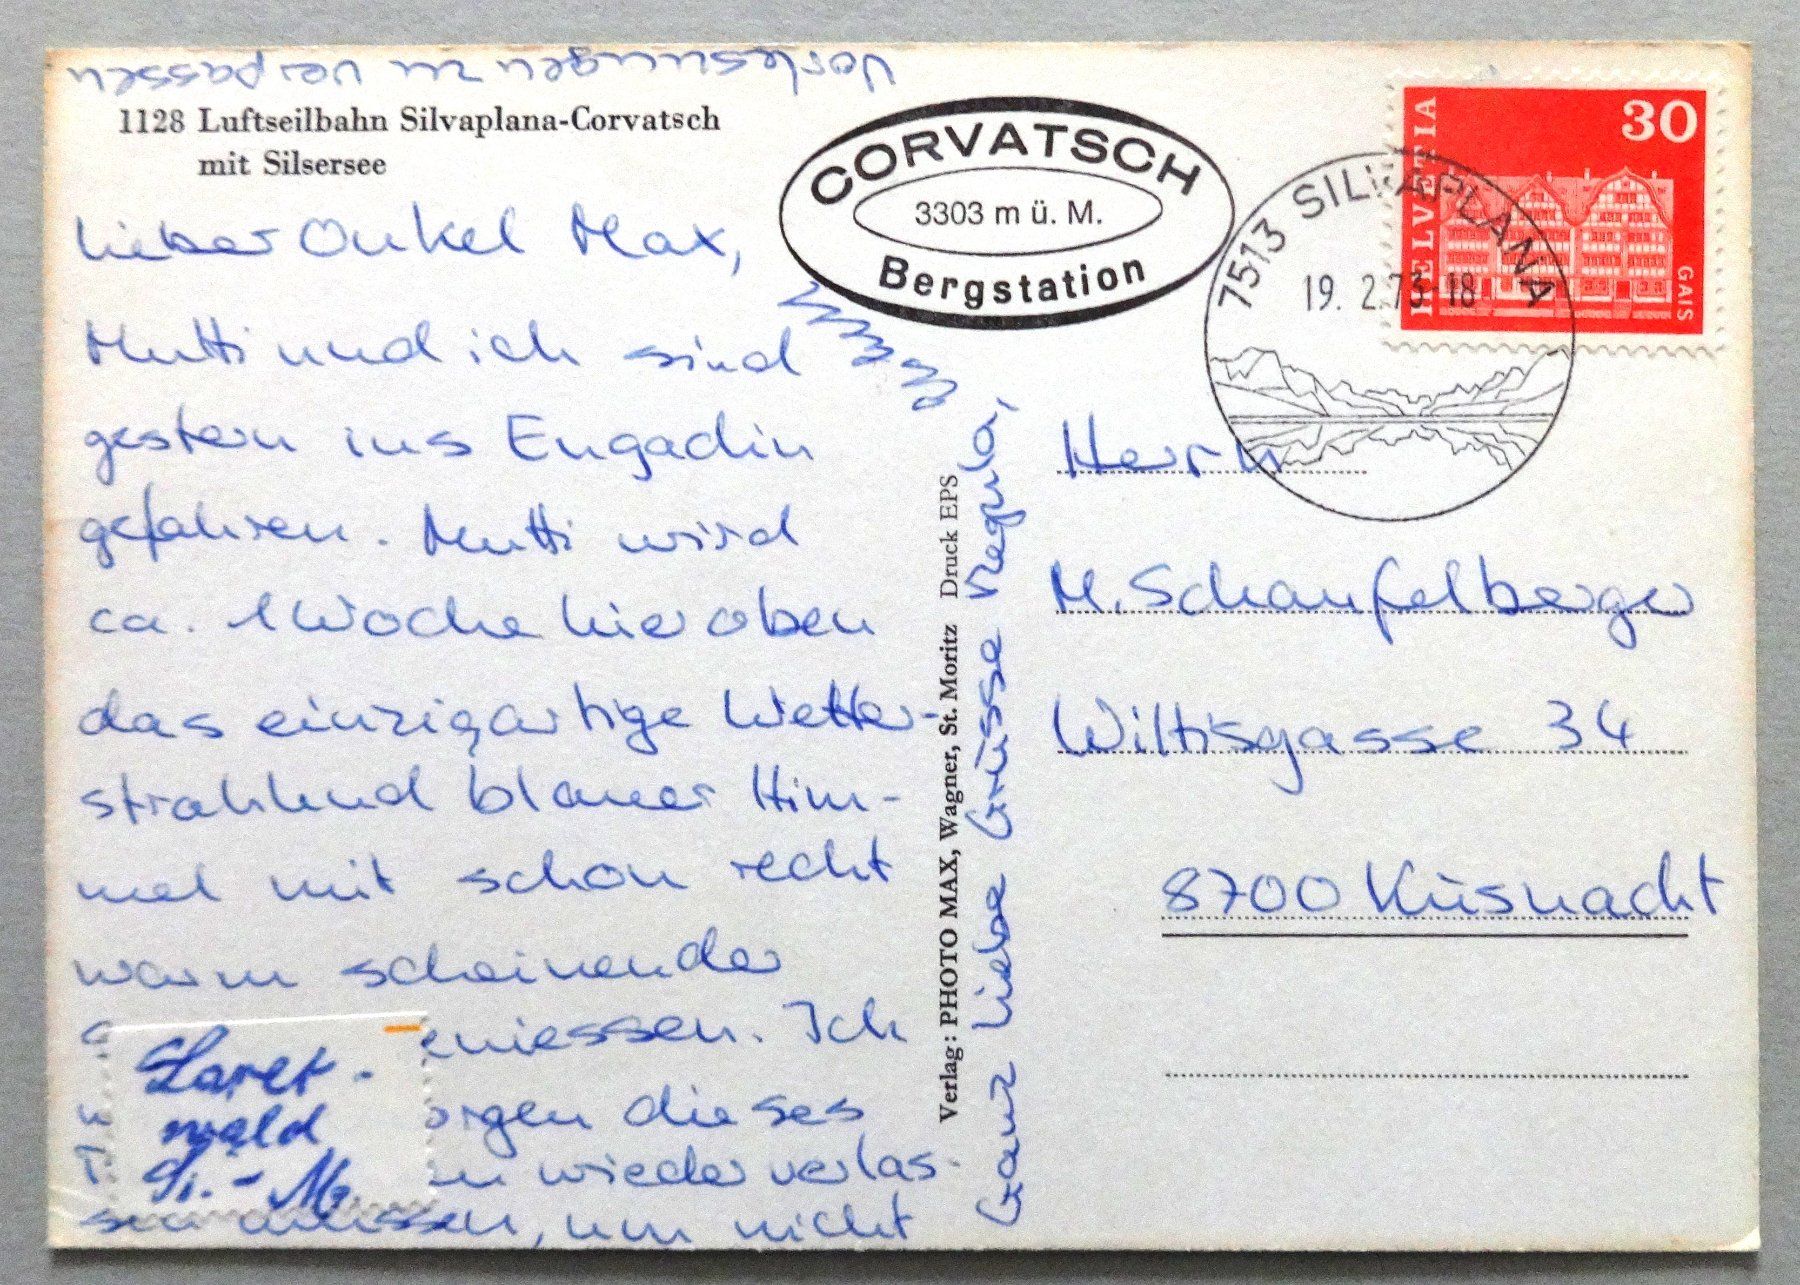 1128 Luftseilbahn Silvaplana-Corvatsch
mit Silsersee
Lieber Onkel Max,
Mutti und ich sind
gestern ins Engadin
gefahren. Mutti wird
ca. 1 Woche hier oben
das einzigartige Wetter-
strahlend blauer Him-
mel mit schon recht
warm scheinender
eniessen. Ich
orgen dieses
en wieder verlas-
sen müssen, um nicht
Vorlesungen zu verpassen
Ganz liebe Grüsse Regula
Laret-
wald
Si.-
CORVATSCH
3303 m ü. M.
Bergstation
7513 SILVAPLANA
19. 2.73-18
HELVETIA
HELVETIA
30
GAIS
Verlag: PHOTO MAX, Wagner, St. Moritz Druck EPS
Herrn
M. Schaufelberger
Wiltisgasse 34
8700 Küsnacht